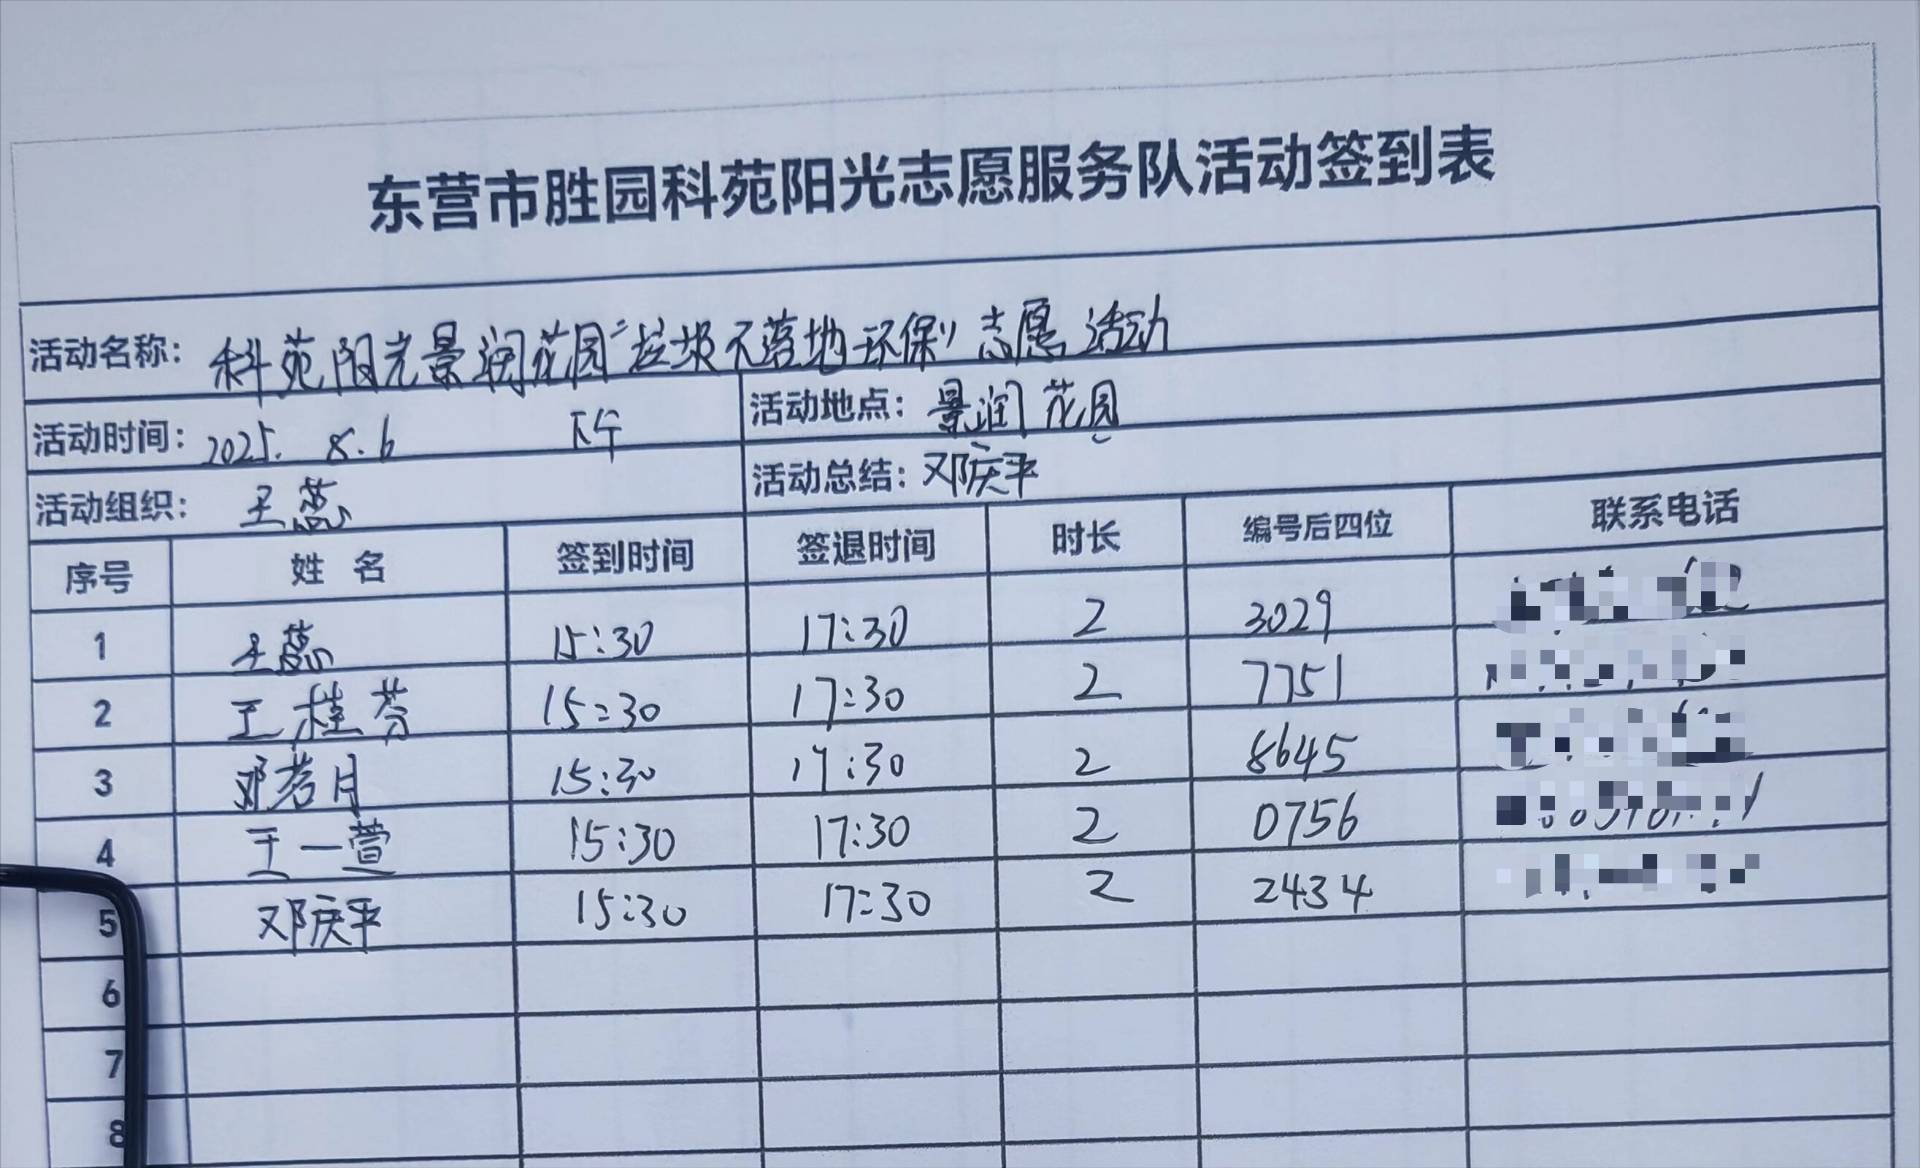 东营市胜园科苑阳光志愿服务队活动签到表
活动名称：科苑阳光景润花园“垃圾不落地 环保”志愿活动
活动时间：2025.8.6 下午 活动地点：景润花园
活动组织：王蕊 活动总结：邓庆平
序号 姓名 签到时间 签退时间 时长 编号后四位 联系电话
1 王蕊 15:30 17:30 2 3029
2 王桂芬 15:30 17:30 2 7751
3 邓芳月 15:30 17:30 2 8645
4 王一萱 15:30 17:30 2 0756
5 邓庆平 15:30 17:30 2 2434
6
7
8